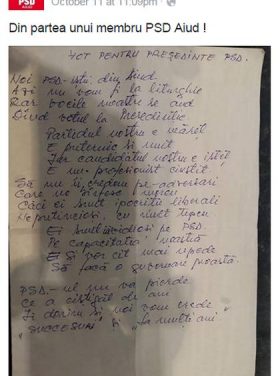 PSD
October 11 at 11:09pm
Din partea unui membru PSD Aiud !
VOT PENTRU PREŞEDINTE PSD.
Noi PSD-iştii din Aiud
Azi nu vom fi la liturghie
Dar vocile noastre se aud
Dînd votul la Preşedinţie
Partidul nostru e măreţ
E puternic şi unit
Iar candidatul nostru e isteţ
E un profesionist cinstit
Să nu îi credem pe adversari
Care ne
Căci ei sunt ipocriţii liberali
Neputincioşi, cu mult tupeu
Ei sunt invidioşi pe PSD
Pe capacitatea noastră
Ei şi vor cît mai repede
Să facă o guvernare proastă.
PSD-ul nu va pierde
Ce a cîştigat de ani
Îi dorim şi noi vom crede
"SUCCESURI" şi "la mulţi ani"